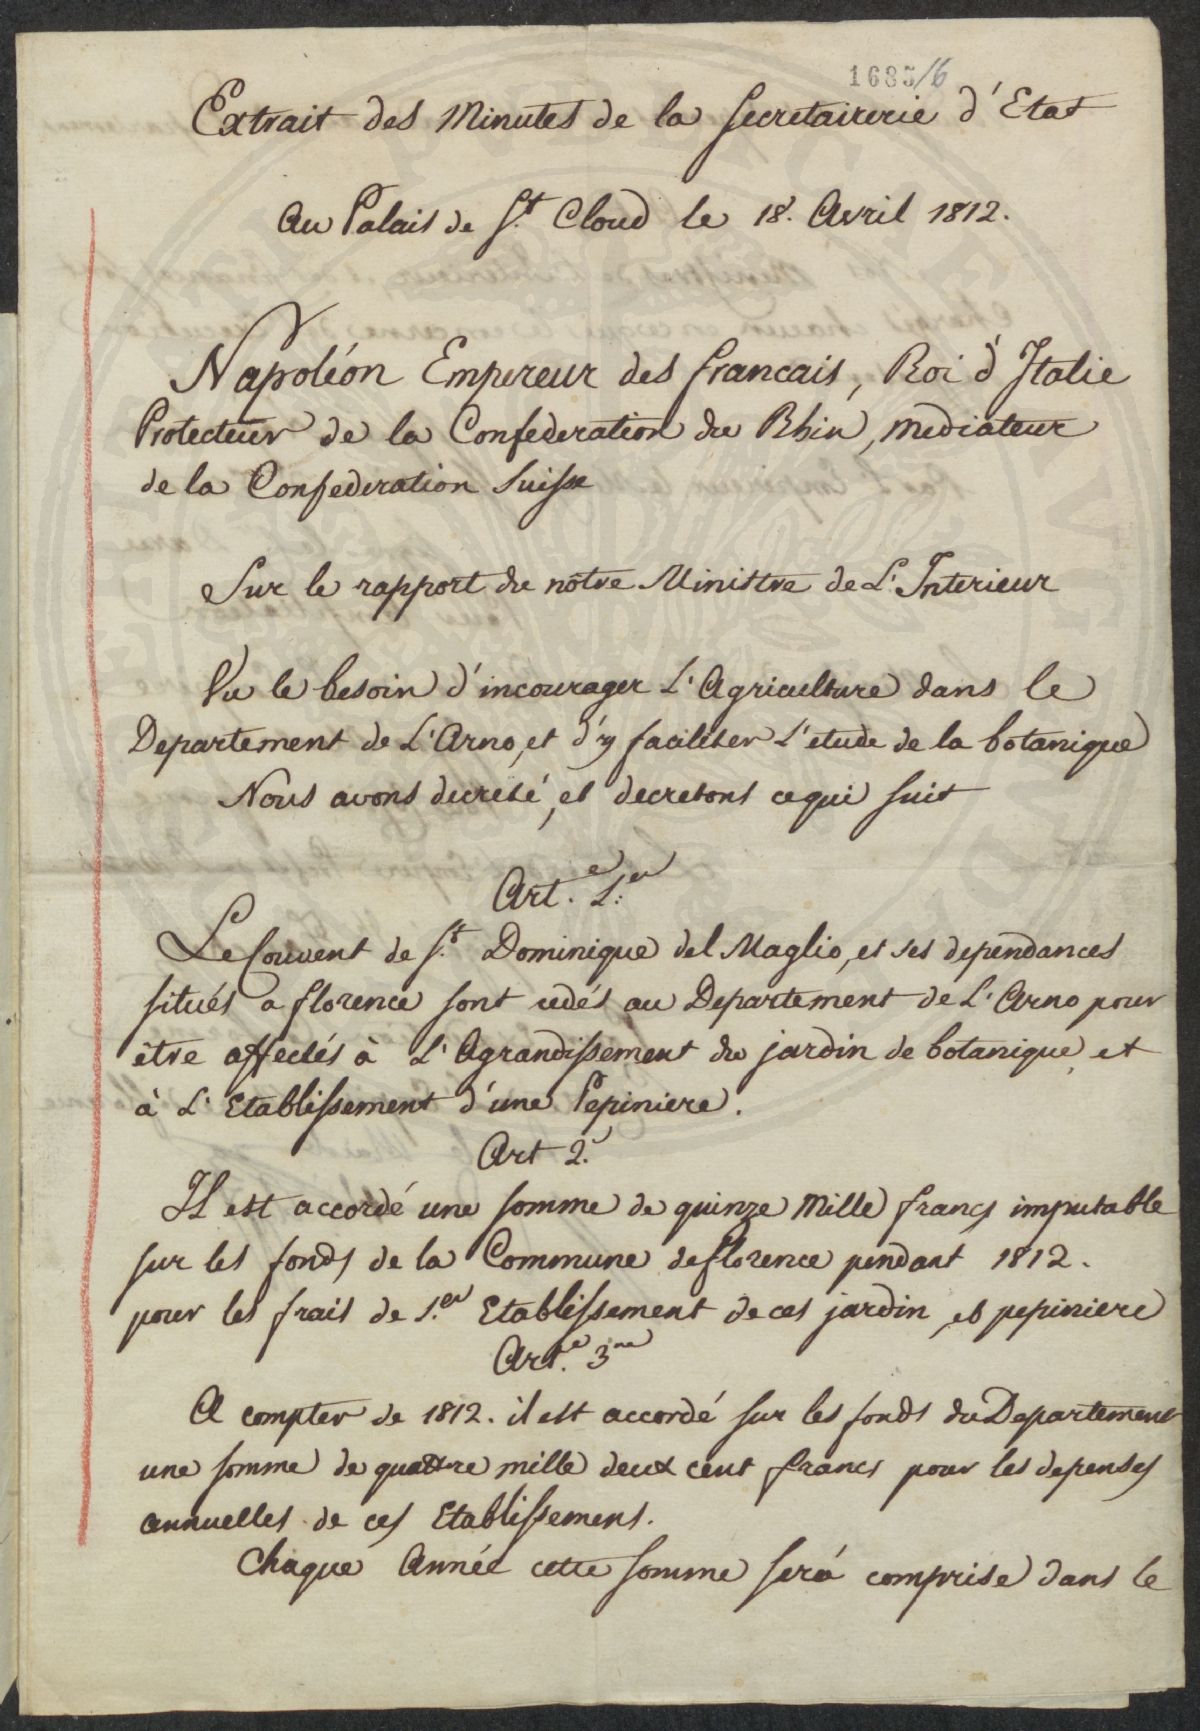 1685/6
Extrait des Minutes de la Secretairerie d'Etat
Au Palais de St. Cloud le 18. Avril 1812.
Napoléon Empereur des francais, Roi d'Italie
Protecteur de la Confederation du Rhin, mediateur
de la Confederation Suisse
Sur le rapport du notre Ministre de L'Interieur
Vu le besoin d'incourager L'Agriculture dans le
Departement de L'Arno, et d'y faciliter L'etude de la botanique
Nous avons decreté, et decretons ce qui suit
Art.e 1.er
Le Couvent de St. Dominique del Maglio, et ses dependances
situés a florence sont cedés au Departement de L'Arno pour
être affectés à L'Agrandissement du jardin de botanique, et
à L'Etablissement d'une Pepiniere.
Art 2.
Il est accordé une somme de quinze Mille francs imputable
sur les fonds de la Commune de florence pendant 1812.
pour les frais de 1.er Etablissement de ces jardin, et pepiniere
Art.e 3me
A compter de 1812. il est accordé sur les fonds du Departement
une somme de quattre mille deux cent francs pour les depenses
annuelles de ces Etablissement.
Chaque Année cette somme será comprise dans le